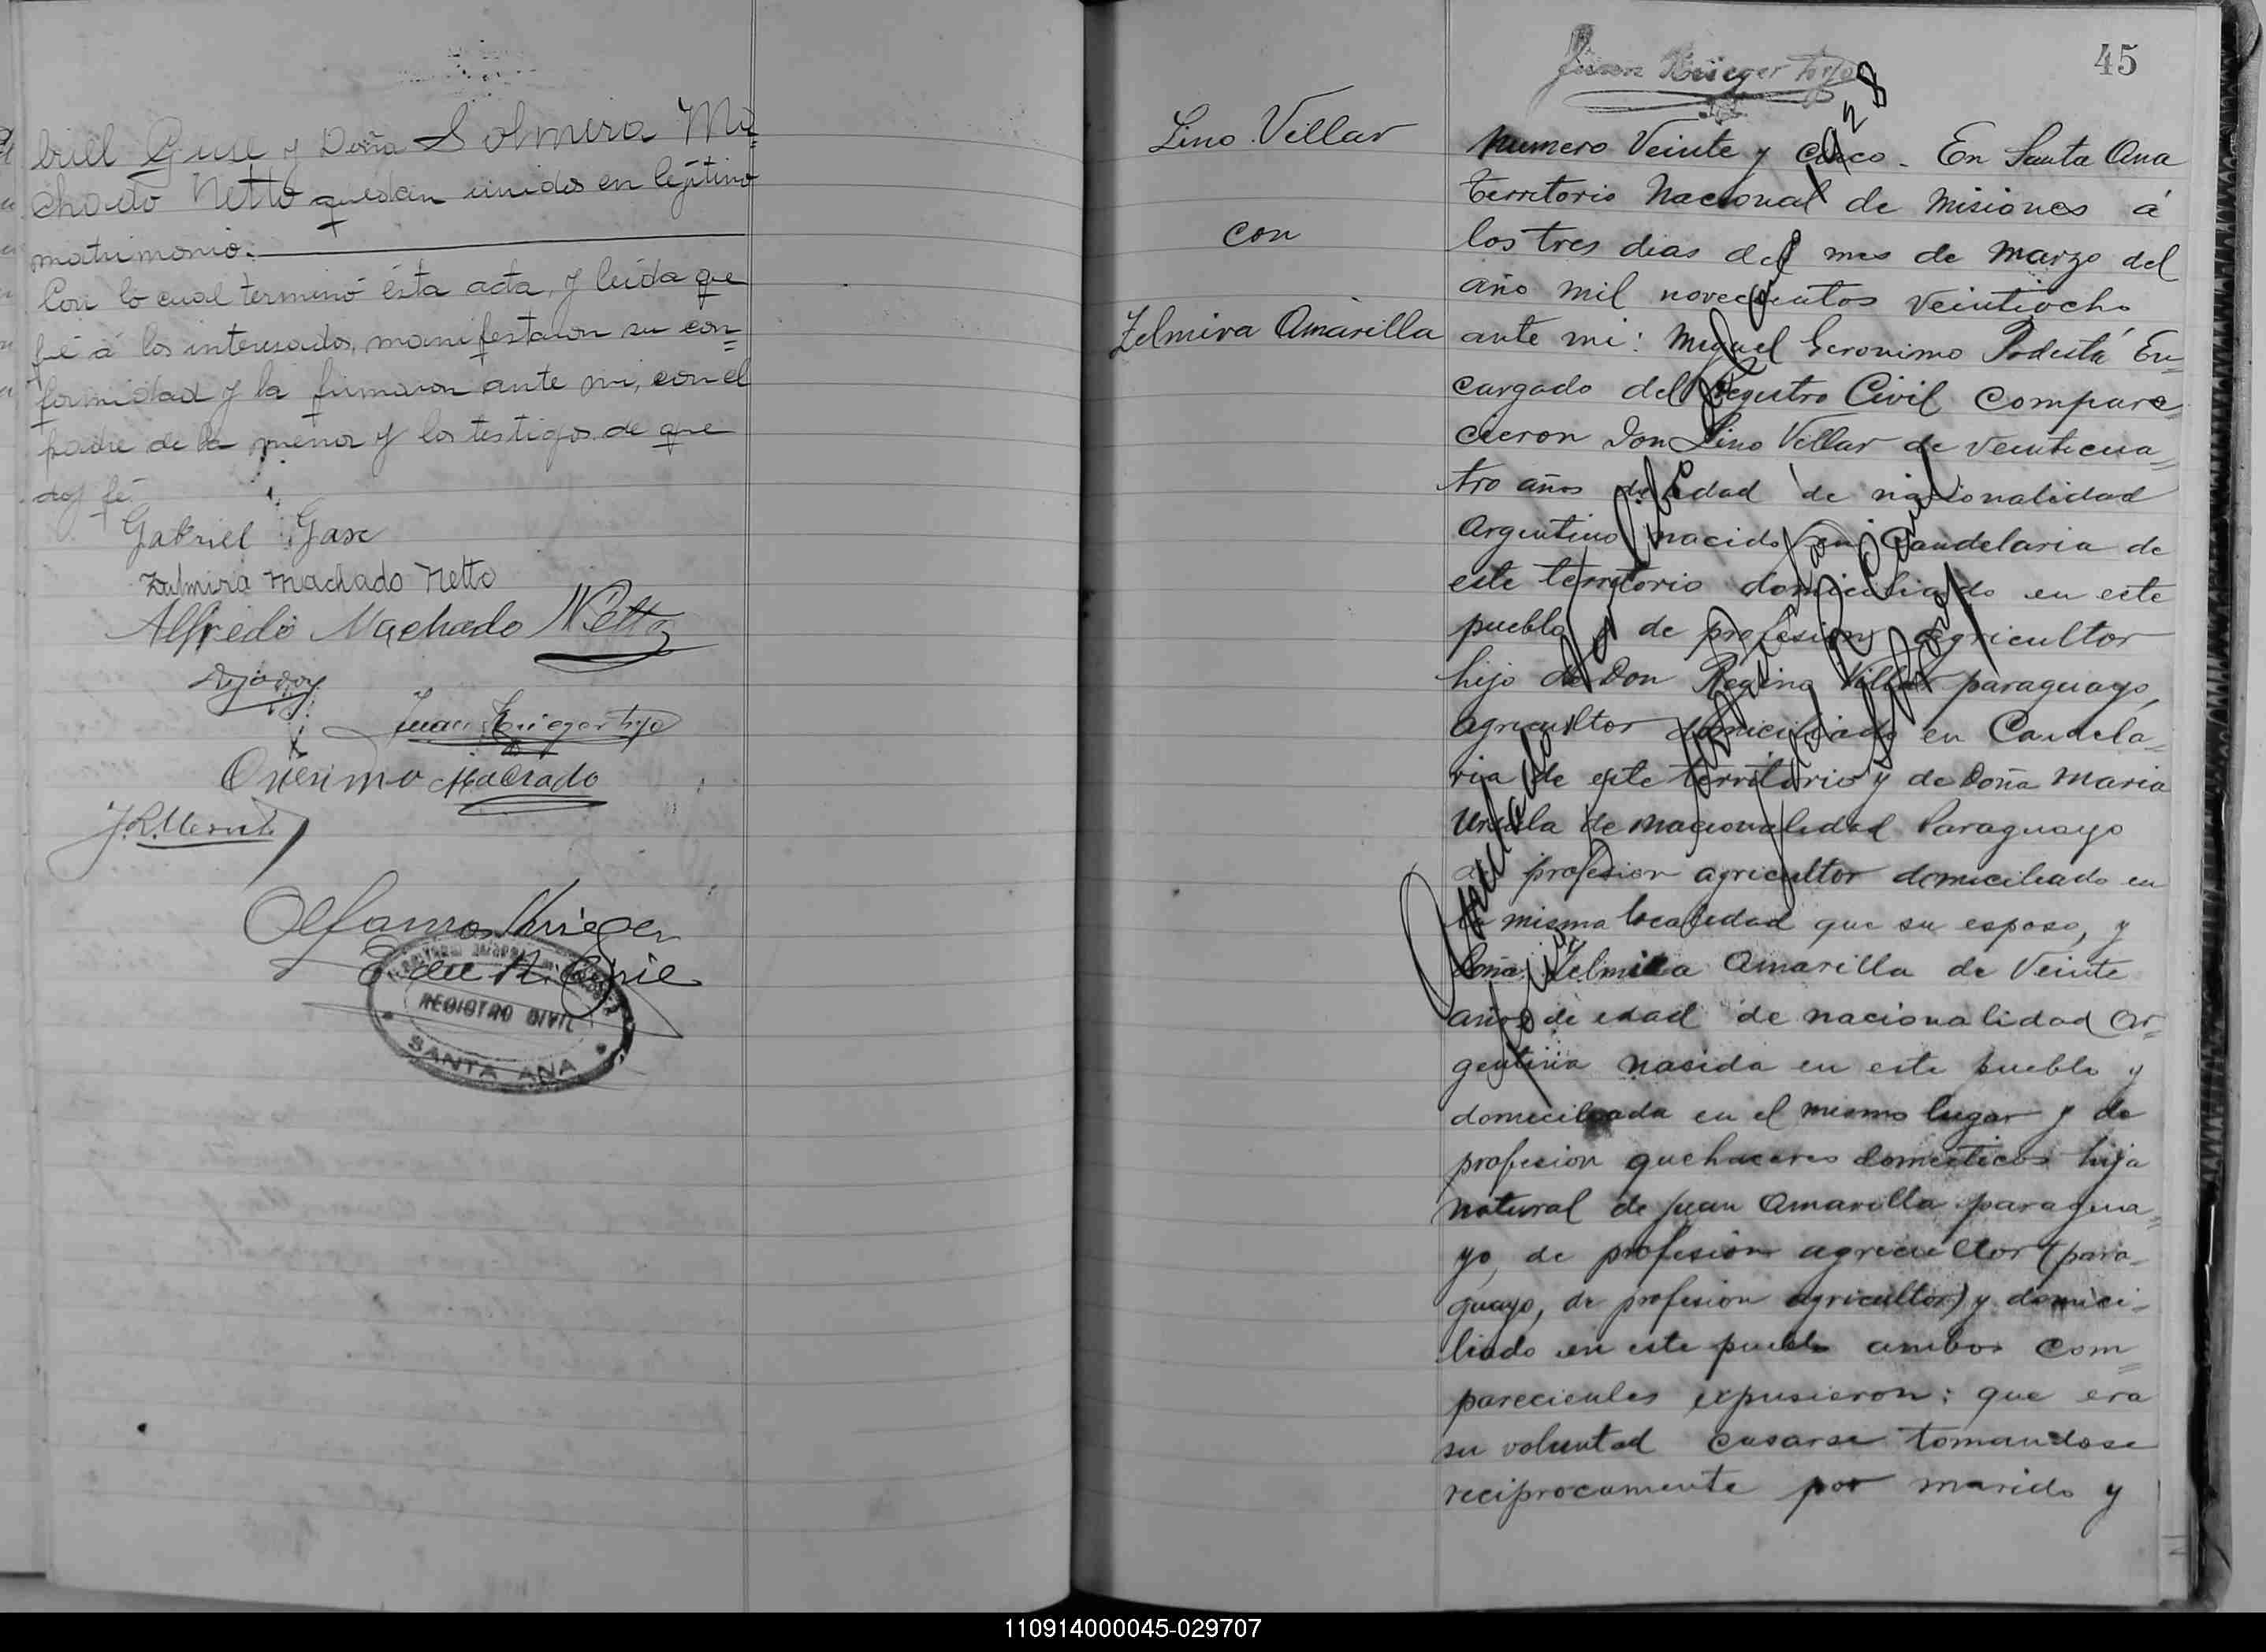 briel Guse y Doña Solmira Ma=
chado Netto quedan unidos en lejitimo
matrimonio.
Con lo cual terminó ésta acta, y leida que
fué á los interesados, manifestaron su con=
formidad y la firmaron ante mi, con el
padre de la menor y los testigos de que
doy fé.
Gabriel Gase
Zulmira Machado Netto
Alfredo Machado Netto
Juan Krieger hijo
Onesimo Machado
Alfonso Krieger
REGISTRO CIVIL
SANTA ANA
45
Juan Krieger hijo
Lino Villar
con
Zelmira Amarilla
Numero Veinte y cinco. En Santa Ana
Territorio Nacional de Misiones á
los tres dias del mes de Marzo del
año mil novecientos veintiocho
ante mi: Miguel Geronimo Podestá En=
cargado del Registro Civil compare=
cieron Don Lino Villar de veinticua=
tro años de edad de nacionalidad
Argentino nacido en Candelaria de
este territorio domiciliado en este
pueblo de profesion agricultor
hijo de Don Regino Villar paraguayo,
agricultor domiciliado en Candela=
ria de este territorio y de Doña Maria
Ursula de nacionalidad Paraguayo
de profesion agricultor domiciliado en
la misma localidad que su esposo, y
Doña Zelmira Amarilla de Veinte
años de edad de nacionalidad Ar=
gentina nasida en este pueblo y
domiciliada en el mismo lugar y de
profesion quehaceres domesticos hija
natural de Juan Amarilla paragua=
yo, de profesion agricultor (para-
guayo, de profesion agricultor) y domici-
liado en este pueblo ambos com=
parecientes expusieron: que era
su voluntad casarse tomandose
reciprocamente por marido y
Anulado
1928
110914000045-029707